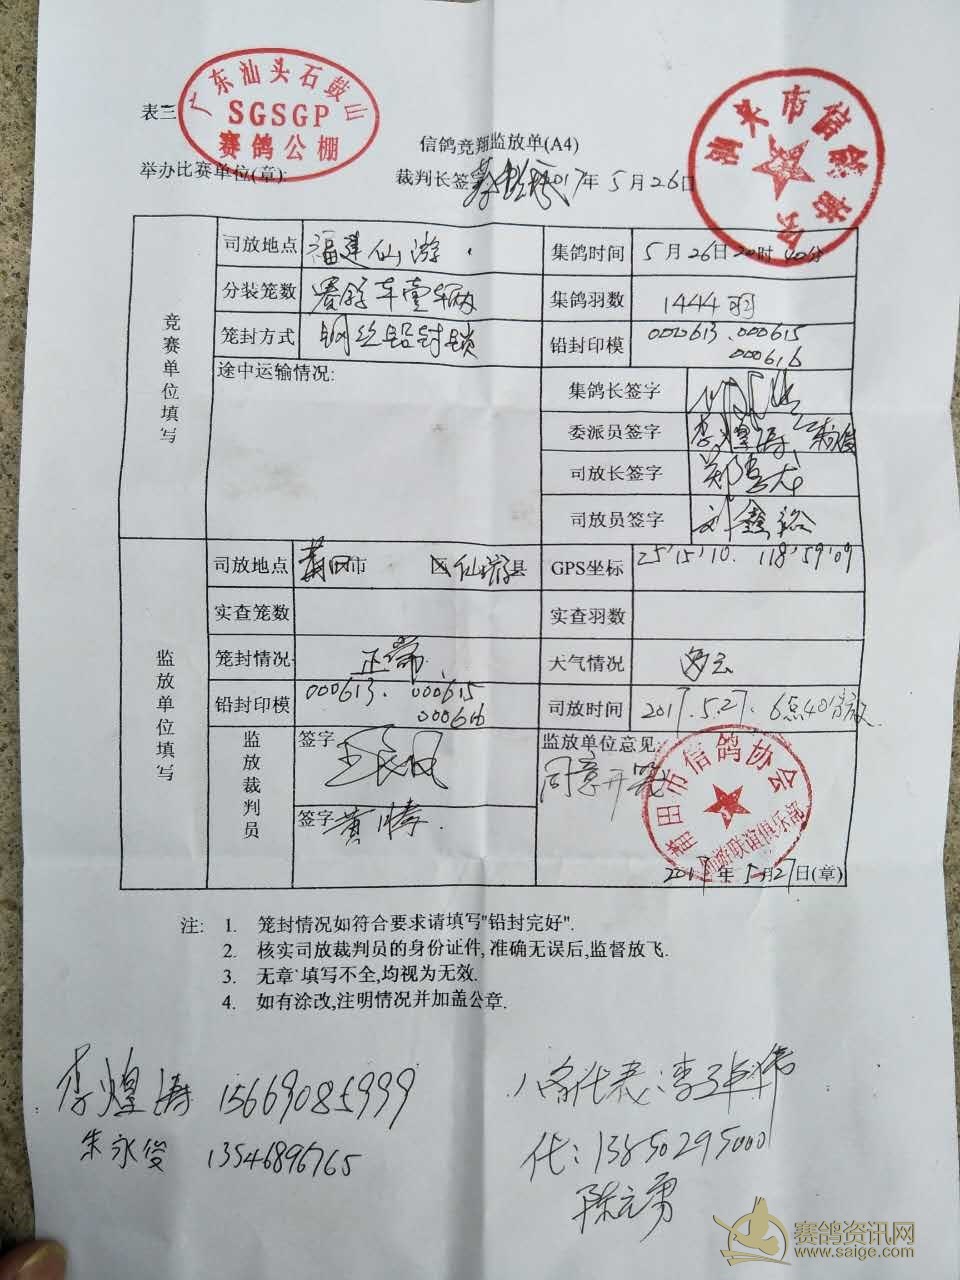 广东汕头石鼓山
SGSGP
赛鸽公棚
汕头市信鸽协会
表三
信鸽竞翔监放单(A4)
举办比赛单位(章):
裁判长签 2017年5月26日
竞赛单位填写
司放地点 福建仙游 集鸽时间 5月26日20时40分
分装笼数 赛鸽车壹辆 集鸽羽数 1444羽
笼封方式 钢丝铅封锁 铅封印模 000613.000615
000616
途中运输情况: 集鸽长签字
委派员签字 李煌涛 朱永俊
司放长签字 郑
司放员签字 刘鑫裕
监放单位填写
司放地点 莆田市 区仙游县 GPS坐标 25°15'10. 118°59'09
实查笼数 实查羽数
笼封情况 正常 天气情况 多云
铅封印模 000613. 000615
000616
司放时间 2017.5.27. 6点40分放
监放裁判员 签字
签字 黄
监放单位意见:
同意开笼
莆田市信鸽协会
联谊俱乐部
2017年5月27日(章)
注: 1. 笼封情况如符合要求请填写"铅封完好".
2. 核实司放裁判员的身份证件, 准确无误后,监督放飞.
3. 无章`填写不全,均视为无效.
4. 如有涂改,注明情况并加盖公章.
李煌涛 15669085999
朱永俊 13546896765
代表:李
代:13850295000
陈元勇
赛鸽资讯网
www.saige.com